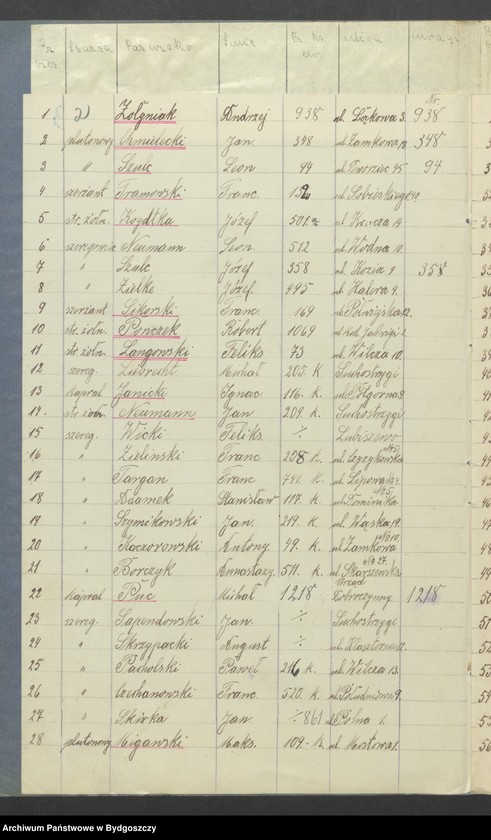 Nr bież. Szarża Nazwisko Imię Nr ks. ew. ulica uwagi
Nr.
1 Żołgniak Andrzej 938 ul. 3. 938
2 plutonowy Chmielecki Jan. 348 ul. Zamkowa 18 348
3 " Szulc Leon 94 ul. Dworzec 45 94
4 szerżant Tramowski Franc. 132 ul. Sobieskiego 40
5 str. żołn. Koydtka Józef 501.a ul. 14
6 szeregowiec Neumann Leon. 512 ul. Wodna
7 " Szulc Józef 358 ul. Kozia 9 358
8 " Zielke Józef. 495 ul. Halera 9.
9 szerżant Sikorski Franc. 169 12.
10 str. żołn. Ponczek Robert 1069
11 str. żołn. Langowski Feliks 73 ul. Wilcza 10.
12 szereg. Liebrecht Michał 205. K Suchostrzygi
13 kapral Janicki Ignac. 116. K.
14. str. żołn. Neumann Jan 209. K. Suchostrzygi
15 szereg. Wicki Feliks ./. Lubiszewo
16 " Zieliński Franc 208 K. ul. Czyżykowska
17 " Targan Franc 491. K. ul. Lipowa
18 " Adamek Stanisław 117. K. ul. Dominika
19 " Szymikowski Jan. 219. K. ul. Wąska 19.
20 " Kaczorowski Antony. 49. K. ul. Zamkowa
21 " Borczyk Annastazy. 511. K. ul. Skarszewska
22 kapral Puc Michał 1218 Dobrczymy 1218
23 szereg. Sapendowski Jan. ./. Suchostrzygi
24 " Skrzypacki August ./. ul. Klasztorna 12.
25 " Pacholski Paweł 216 K. ul. Wilcza 13.
26 " Czechanowski Franc. 520. K. ul. Południowa 9.
27 " Skórka Jan ./. 861 ul. Pilna 1.
28 plutonowy Miganski Maks. 109. K. ul. Mostowa 1.
Archiwum Państwowe w Bydgoszczy